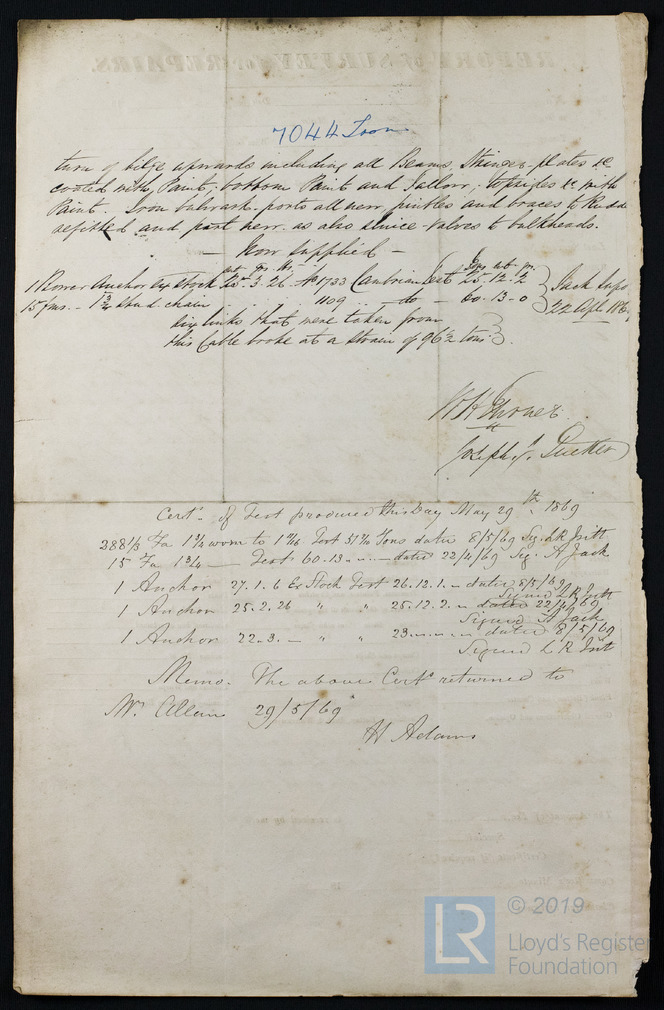 7044 Iron
turn of bilge upwards including all Beams, Stringer-plates &c
coated with Paint; bottom Paint and Tallow, topsides &c with
Paint. Iron bulwark-ports all new, pintles and braces to Rudder
refitted and part new. as also sluice valves to bulkheads.
— Now Supplied —
1 Bower Anchor ex stock 25.3.26 No 1733 Cambrian Test 25.12.2 Jack Supt
15 fms. 1 3/4 Stud chain 1109 do 60.13.0 22 Apl
links that were taken from
this Cable broke at a strain of 96 1/2 tons
W H Turner
Joseph J. Tucker
Certs. of Test produced this day May 29th 1869
288 1/3 Fa 1 3/4 worn to 1 11/16 Test 51 Tons dated 8/5/69 Sig.
15 Fa 1 3/4 — Test 60.13 — dated 22/4/69 Sig. A Jack
1 Anchor 27.1.6 Ex Stock Test 26.12.1 — dated 8/5/69
Signed
1 Anchor 25.2.26 " " 25.12.2 — dated 22/4/69
Signed A Jack
1 Anchor 22.3.— " " 23 — dated 8/5/69
Signed
Memo. The above Certs. returned to
Mr. Allan 29/5/69
H Adams
© 2019
LR
Lloyd's Register
Foundation
REPORT of SURVEY for REPAIRS.